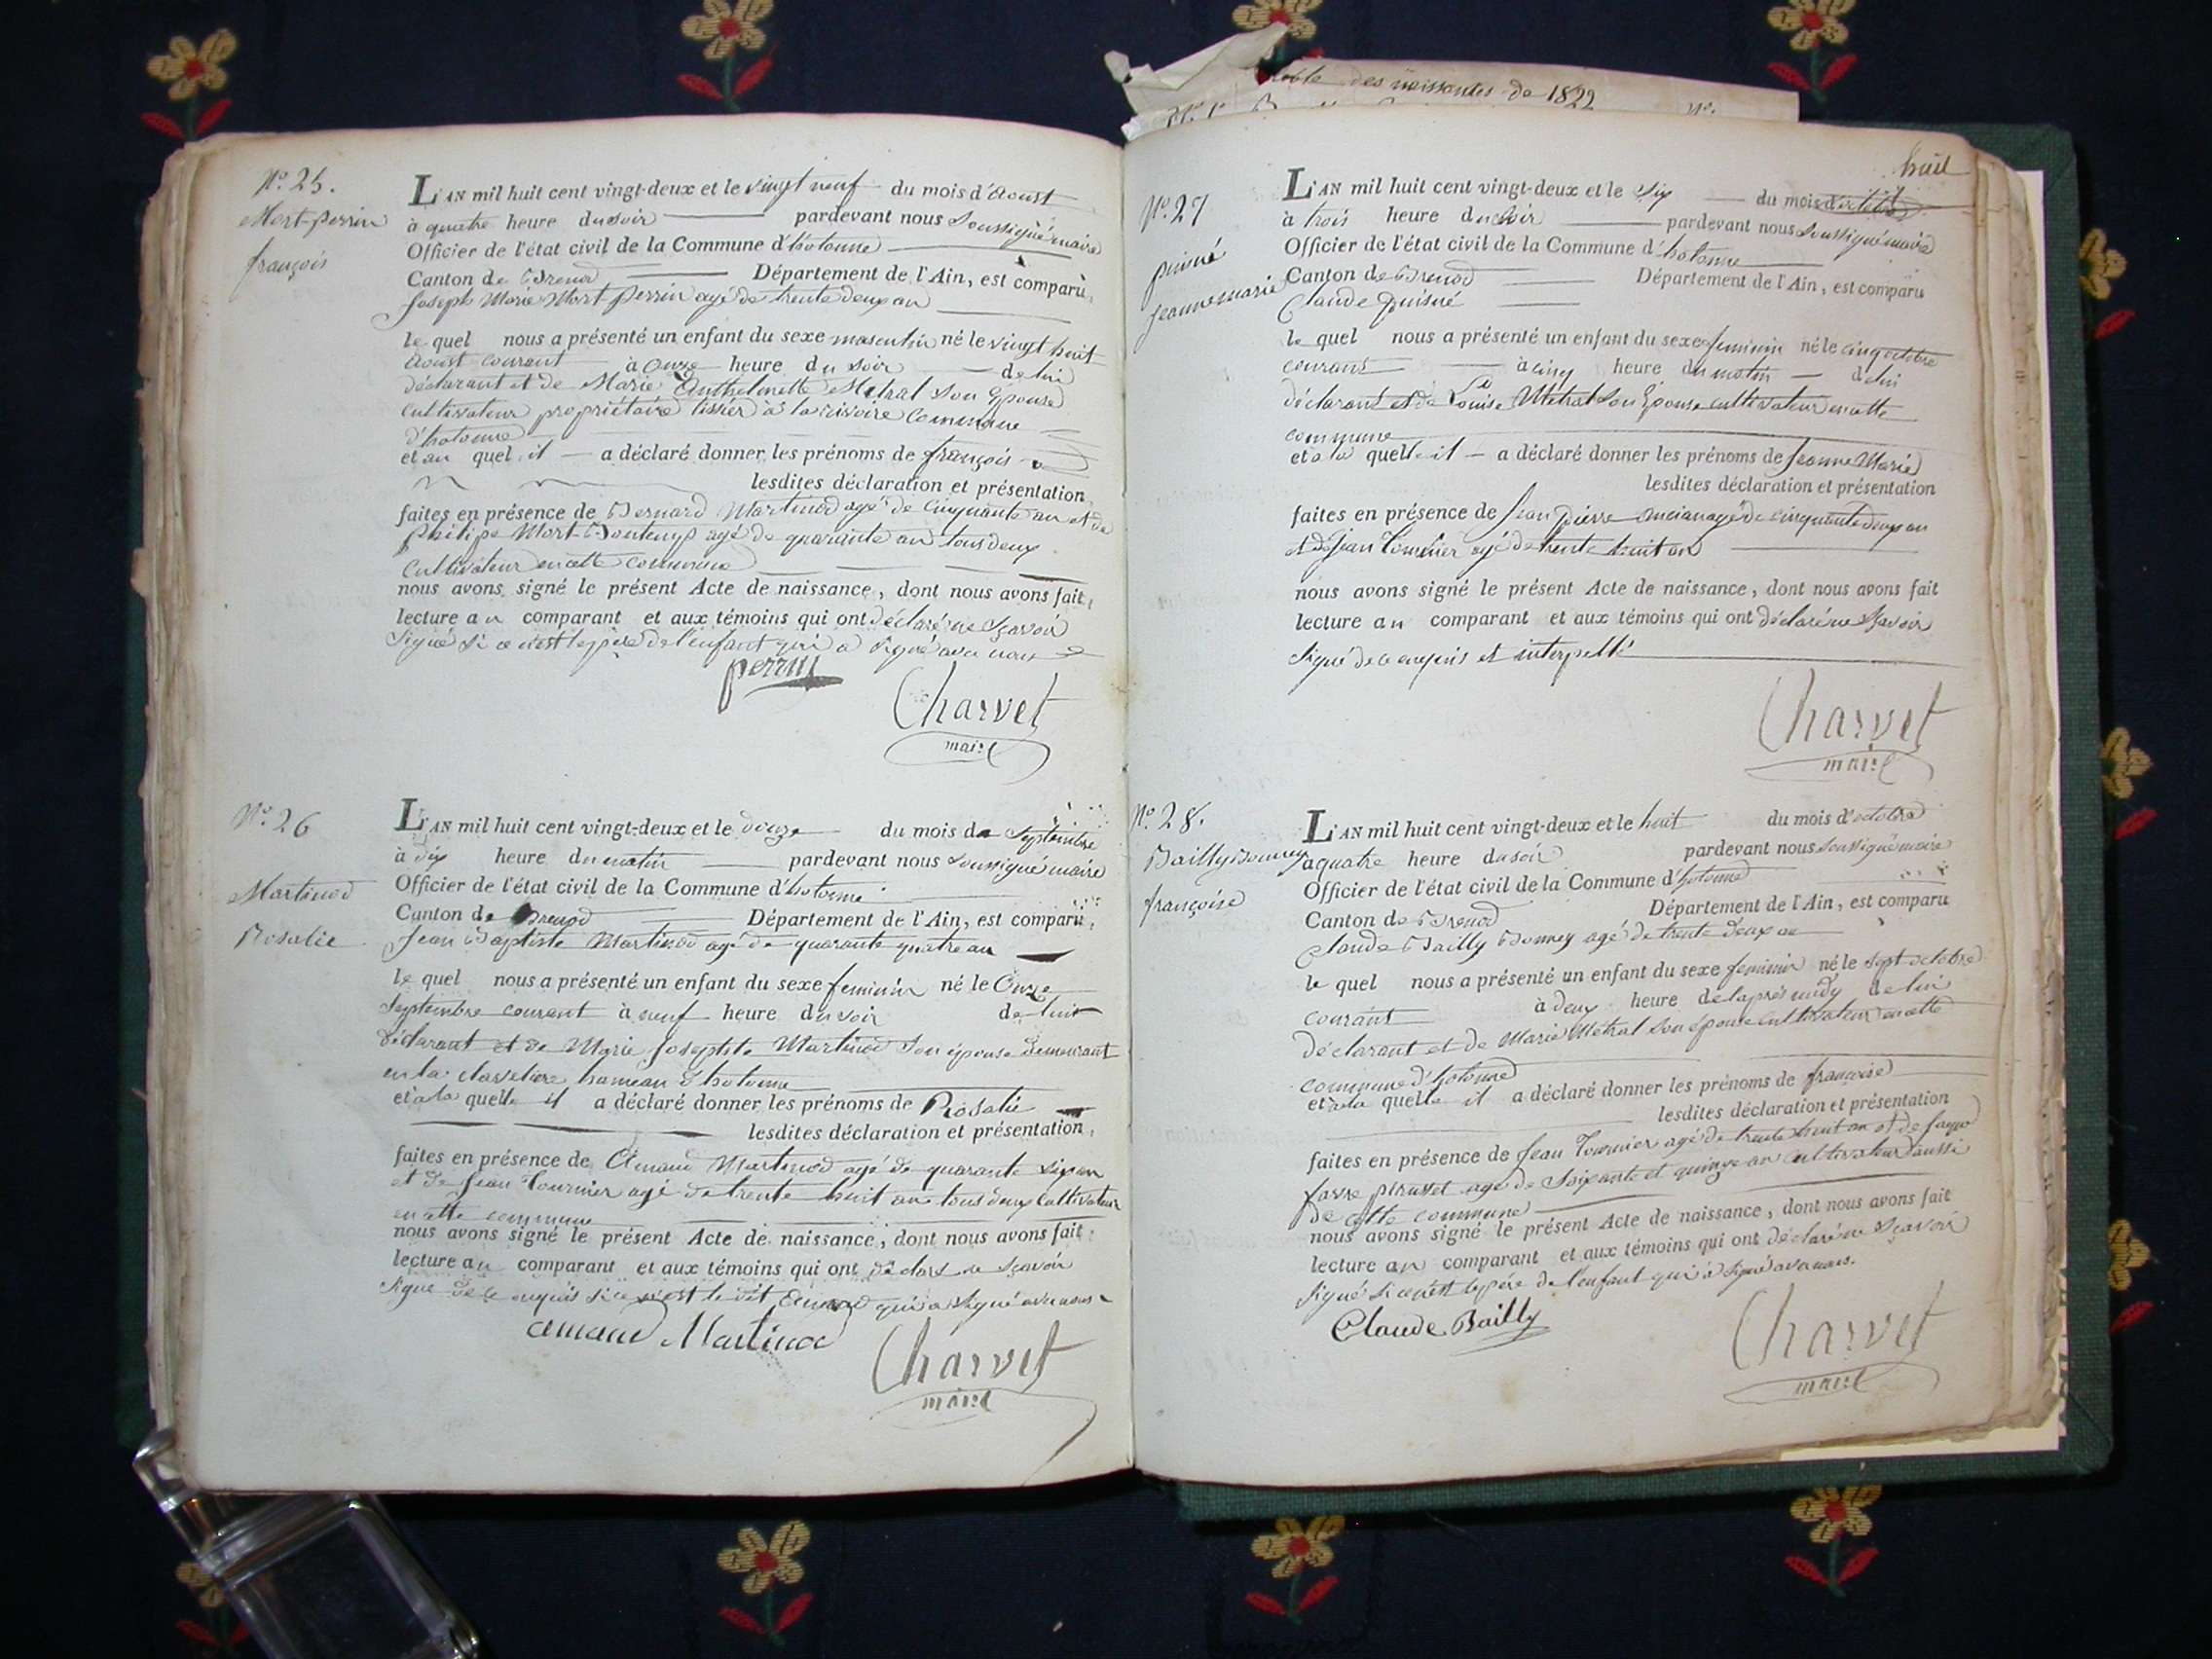 table des naissances de 1822
N°.
N°. 25.
Mort-perrin
françois
L'AN mil huit cent vingt-deux et le vingt neuf du mois d'Aoust
à quatre heure du soir pardevant nous soussigné maire
Officier de l'état civil de la Commune d'hotonne
Canton de Brenod Département de l'Ain, est comparu,
Joseph Marie Mort perrin agé de trente deux an
le quel nous a présenté un enfant du sexe masculin né le vingt huit
Aoust courant à Onze heure du soir de lui
déclarant et de Marie Anthelmette Metral son Epouse
cultivateur propriétaire tissier à la commune
d'hotonne
et au quel il a déclaré donner les prénoms de françois
lesdites déclaration et présentation
faites en présence de Bernard Martinod agé de Cinquante an et de
philipe Mort-Bontemps agé de quarante an tous deux
cultivateur en cette commune
nous avons signé le présent Acte de naissance, dont nous avons fait
lecture au comparant et aux témoins qui ont déclaré ne sçavoir
signé si ce n'est le père de l'enfant qui a signé avec nous
perrin
Charvet
maire
N°. 26
Martinod
Rosalie
L'AN mil huit cent vingt-deux et le douze du mois de septembre
à dix heure du matin pardevant nous soussigné maire
Officier de l'état civil de la Commune d'hotonne
Canton de Brenod Département de l'Ain, est comparu,
Jean Baptiste Martinod agé de quarante quatre an
le quel nous a présenté un enfant du sexe feminin né le Onze
septembre courant à neuf heure du soir de lui
déclarant et de Marie Josephte Martinod son épouse demeurant
en la claveliere hameau d'hotonne
et à la quelle il a déclaré donner les prénoms de Rosalie
lesdites déclaration et présentation,
faites en présence de Amand Martinod agé de quarante six an
et de Jean Tournier agé de trente huit an tous deux Cultivateur
en cette commune
nous avons signé le présent Acte de naissance, dont nous avons fait
lecture au comparant et aux témoins qui ont déclaré ne sçavoir
signé de ce enquis si ce n'est le dit Amand qui a signé avec nous
amand Martinod
Charvet
maire
huit
N°. 27
puiné
jeanne marie
L'AN mil huit cent vingt-deux et le six du mois d'octobre
à trois heure du soir pardevant nous soussigné maire
Officier de l'état civil de la Commune d'hotonne
Canton de Brenod Département de l'Ain, est comparu
Claude puisné
le quel nous a présenté un enfant du sexe feminin né le cinq octobre
courant à cinq heure du matin de lui
déclarant et de Louise Metral son Epouse cultivateur en cette
commune
et a la quelle il a déclaré donner les prénoms de Jeanne Marie
lesdites déclaration et présentation
faites en présence de Jean pierre ancian agé de cinquante deux an
et de Jean Tournier agé de trente huit an
nous avons signé le présent Acte de naissance, dont nous avons fait
lecture au comparant et aux témoins qui ont déclaré ne sçavoir
signé de ce enquis et interpellé
Charvet
maire
N°. 28.
Bailly Bonney
françoise
L'AN mil huit cent vingt-deux et le huit du mois d'octobre
a quatre heure du soir pardevant nous soussigné maire
Officier de l'état civil de la Commune d'hotonne
Canton de Brenod Département de l'Ain, est comparu
Claude Bailly Bonney agé de trente deux an
le quel nous a présenté un enfant du sexe feminin né le sept octobre
courant à deux heure de laprés midy de lui
déclarant et de Marie Metral son épouse cultivateur en cette
commune d'hotonne
et a la quelle il a déclaré donner les prénoms de françoise
lesdites déclaration et présentation
faites en présence de Jean Tournier agé de trente huit an et de
favre agé de soixante et quinze an cultivateur aussi
de cette commune
nous avons signé le présent Acte de naissance, dont nous avons fait
lecture au comparant et aux témoins qui ont déclaré ne sçavoir
signé si ce n'est le père de l'enfant qui a signé avec nous.
Claude Bailly
Charvet
maire